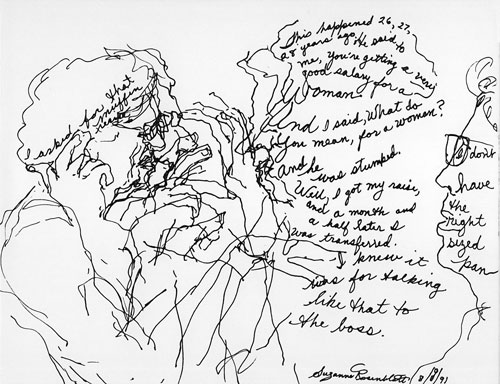 I asked for that
muffin
This happened 26, 27,
28 years ago. He said to
me, You're getting a very
good salary for a
woman
And I said, What do
you mean, for a woman?
and he
was stumped.
Well, I got my raise,
and a month and
a half later I
was transferred.
I knew it
was for talking
like that to
the boss.
I don't
have
the
right
sized
pan
Suzanne Rosenblatt 8/8/91